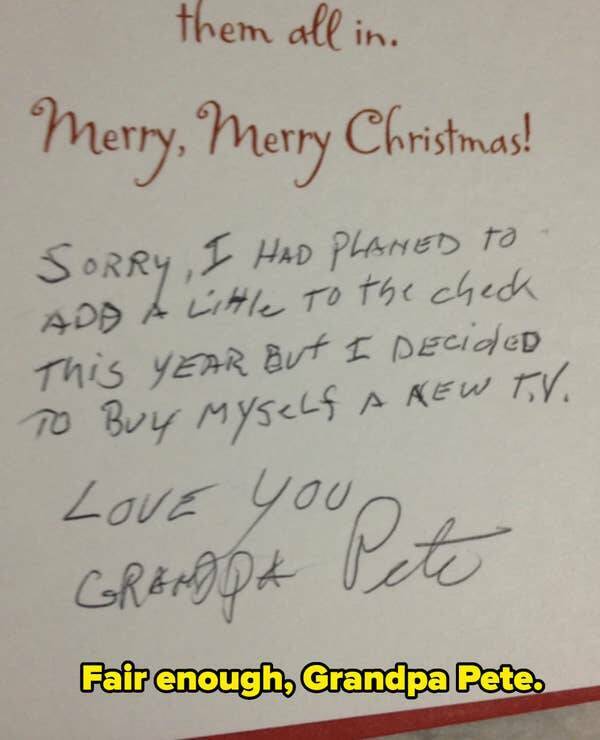 them all in.
Merry, Merry Christmas!
SORRY, I HAD PLANED TO
ADD A Little TO the check
This YEAR But I DECidED
TO BUY MYSeLf A NEW T.V.
LOVE YOU
GRANDPA Pete
Fair enough, Grandpa Pete.